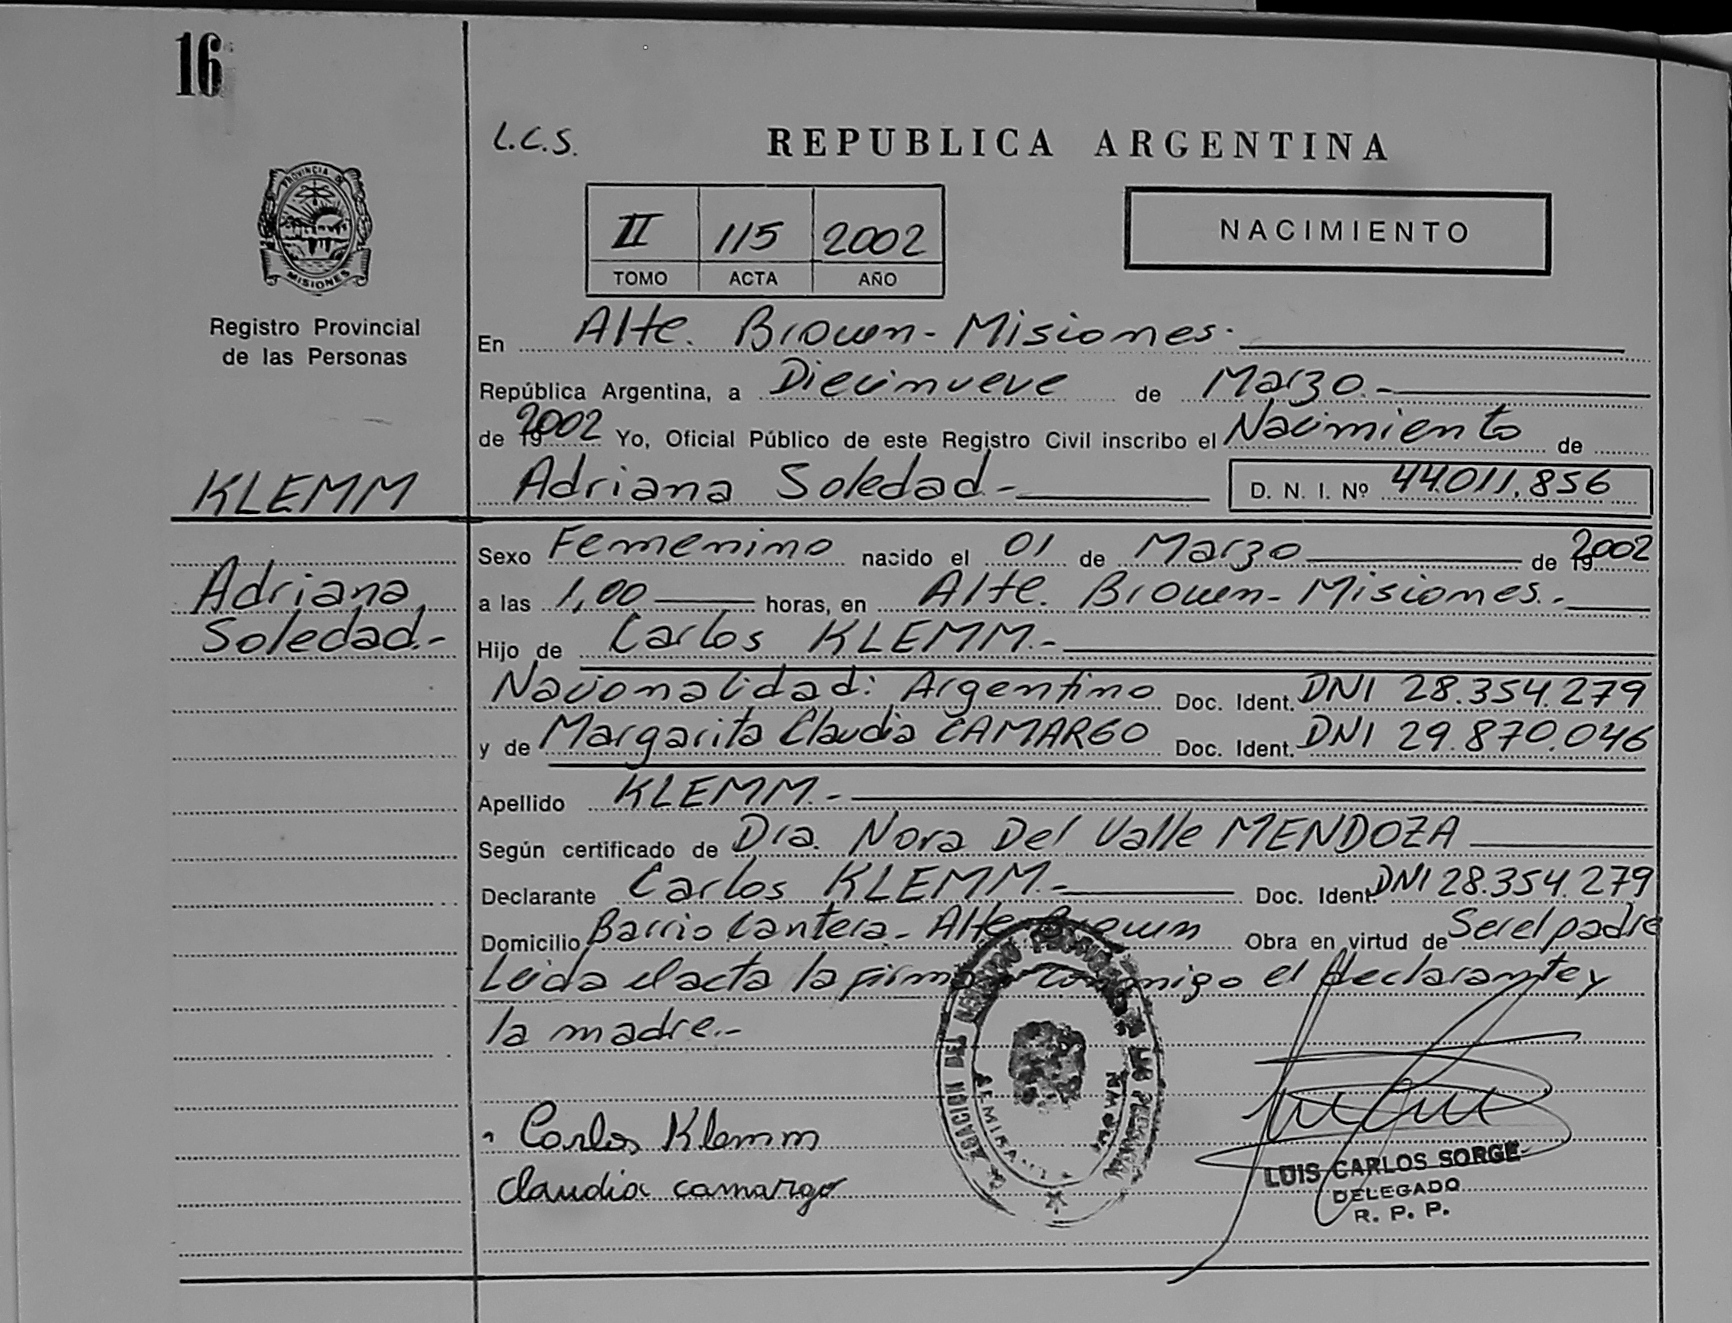 16
L.C.S.
REPUBLICA ARGENTINA
PROVINCIA DE
MISIONES
II 115 2002
TOMO ACTA AÑO
NACIMIENTO
Registro Provincial
de las Personas
En Alte. Brown - Misiones.-
República Argentina, a Diecinueve de Marzo.-
de 2002 Yo, Oficial Público de este Registro Civil inscribo el Nacimiento de
KLEMM
Adriana Soledad.- D. N. I. Nº 44.011.856
Sexo Femenino nacido el 01 de Marzo de 2002
Adriana
Soledad.-
a las 1,00 horas, en Alte. Brown - Misiones.-
Hijo de Carlos KLEMM.-
Nacionalidad: Argentino Doc. Ident. DNI 28.354.279
y de Margarita Claudia CAMARGO Doc. Ident. DNI 29.870.046
Apellido KLEMM.-
Según certificado de Dra. Nora Del Valle MENDOZA
Declarante Carlos KLEMM.- Doc. Ident. DNI 28.354.279
Domicilio Barrio Cantera - Alte Brown Obra en virtud de Ser el padre
Leida el acta la firman conmigo el declarante y
la madre.-
Carlos Klemm
Claudia camargo
LUIS CARLOS SORGE
DELEGADO
R. P. P.